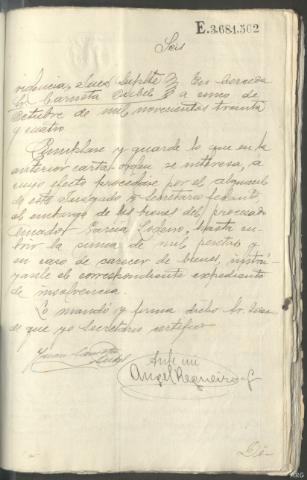 E.3.681.502
Seis
Providencia, Juez Suplte
Octubre de mil novecientos treinta
y cuatro
Cúmplase y guarde lo que en la
anterior carta-orden se interesa, a
cuyo efecto procédase por el alguacil
de este Juzgado y Secretario
al embargo de los bienes del procesado
Amador García hasta cu-
brir la suma de mil pesetas y
en caso de carecer de bienes, instrú-
yasele el correspondiente expediente
de insolvencia.
Lo mandó y firma dicho Sr. Juez
de que yo Secretario certifico
Ante mi
Angel Regueiro